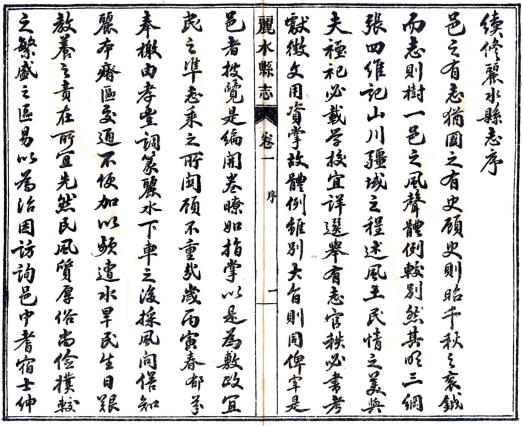 續修麗水縣志序
邑之有志猶國之有史顧史則昭千秋之袞鉞
而志則樹一邑之風聲體例較別然其明三綱
張四維記山川疆域之程述風土民情之美與
夫禋祀必載学校宜詳選舉有志官秩必書考
獻徵文用資掌故體例雖別大旨則同俾宰是
麗水縣志 卷一 序 一
邑者披覽是編開卷瞭如指掌以是為敷政宜
民之準志乘之所関顧不重哉歲丙寅春郁芬
奉檄由孝豐調篆麗水下車之後採風問俗知
麗本瘠區交通不便加以頻遭水旱民生日艱
教養之責在所宜先然民風質厚俗尚儉樸較
之繁盛之區易以為治因訪詢邑中耆宿士紳